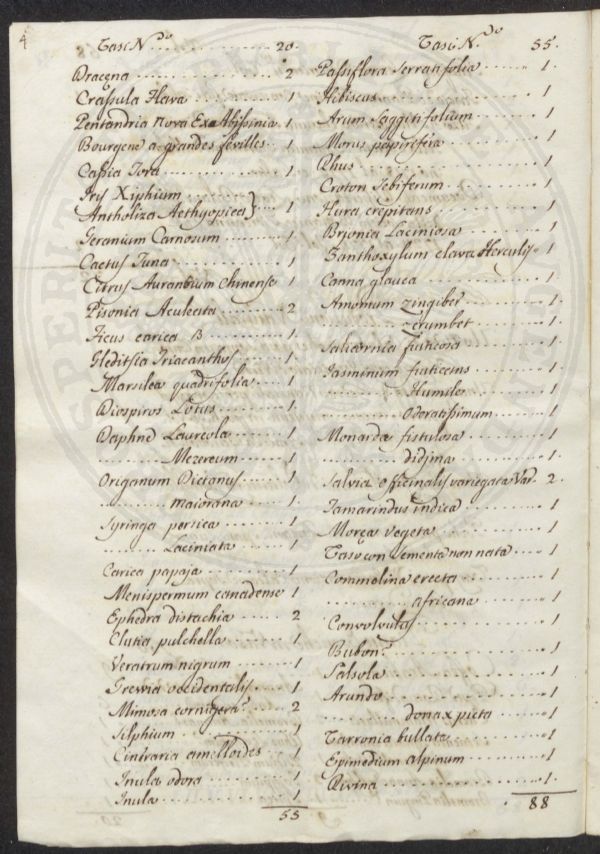 4
Tasi N.º ........ 20.
Dracęna ........ 2
Crassula Flava ........ 1
Pentandria nova Ex Abissinia 1
Bourgene a grandes fevilles .. 1
Cassia Tora ........ 1
Iris Xiphium ........
Antholiza Aethyopica } ... 1
Geranium Carnosum ........ 1
Cactus Tuna ........ 1
Citrus Aurantium chinense 1
Pisonia Aculeata ........ 2
Ficus carica B ........ 1
Gleditsia Triacanthos ........ 1
Marsilea quadrifolia .... 1
Diospiros Lotus ........ 1
Daphne Laureola ........ 1
........ Mezereum ..... 1
Origanum Dicianus ..... 1
........ maiorana ... 1
Syringa persica ........ 1
........ Laciniata ..... 1
Carica papaja ........ 1
Menispermum canadense 1
Ephedra distachia ........ 2
Clutia pulchella ........ 1
Veratrum nigrum ........ 1
Grewia occidentalis ..... 1
Mimosa cornigera ..... 2
Silphium ........ 1
Cineraria amelloides ..... 1
Inula odora ........ 1
Inula ........ 1
55
Tasi N.º 55.
Passiflora serratifolia ..... 1
Hibiscus ........ 1
Arum saggitifolium ..... 1
Morus papirifera ..... 1
Rhus ........ 1
Croton Sebiferum ..... 1
Hura crepitans ........ 1
Brjonia Laciniosa ..... 1
Zanthoxylum clava Herculis 1
Canna glauca ........ 1
Amomum zingiber ..... 1
........ zerumbet ..... 1
Salicornia fruticosa ..... 1
Jasminium fruticans ..... 1
........ Humile ..... 1
........ Odoratissimum ..... 1
Monarda fistulosa ..... 1
........ didjma ..... 1
Salvia officinalis variegata Var. 2.
Tamarindus indica ..... 1
Moręa vegeta ........ 1
Taso con sementa non nata .... 1
Commelina erecta ..... 1
........ africana ..... 1
Convolvulus ........ 1
Bubon ........ 1
Salsola ........ 1
Arundo ........ 1
........ donax picta ..... 1
Tarronia bullata ..... 1
Epimedium alpinum ..... 1
Rivina ........ 1
88